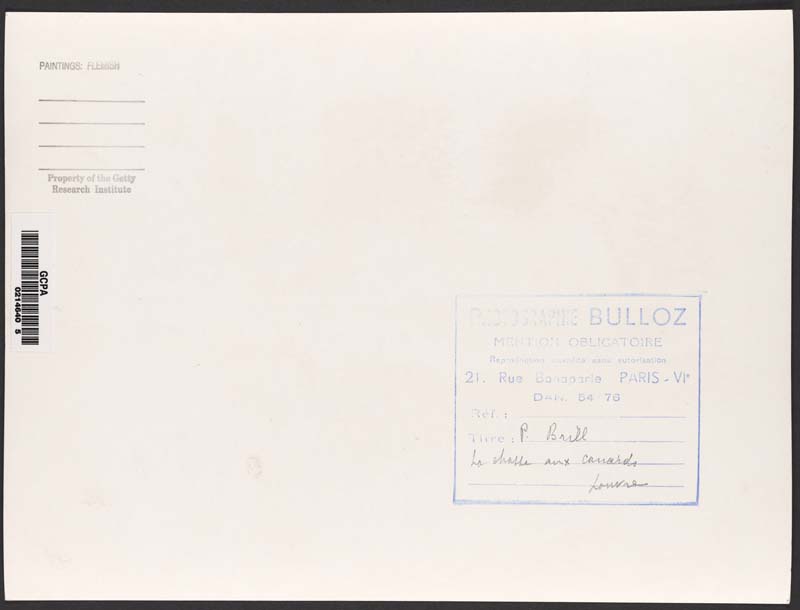 PAINTINGS: FLEMISH
Property of the Getty
Research Institute
GCPA
0214640 5
PHOTOGRAPHIE BULLOZ
MENTION OBLIGATOIRE
Reproduction interdite sans autorisation
21. Rue Bonaparte PARIS - VIe
DAN. 54 76
Réf. :
Titre : P. Brill
La chasse aux canards
Louvre